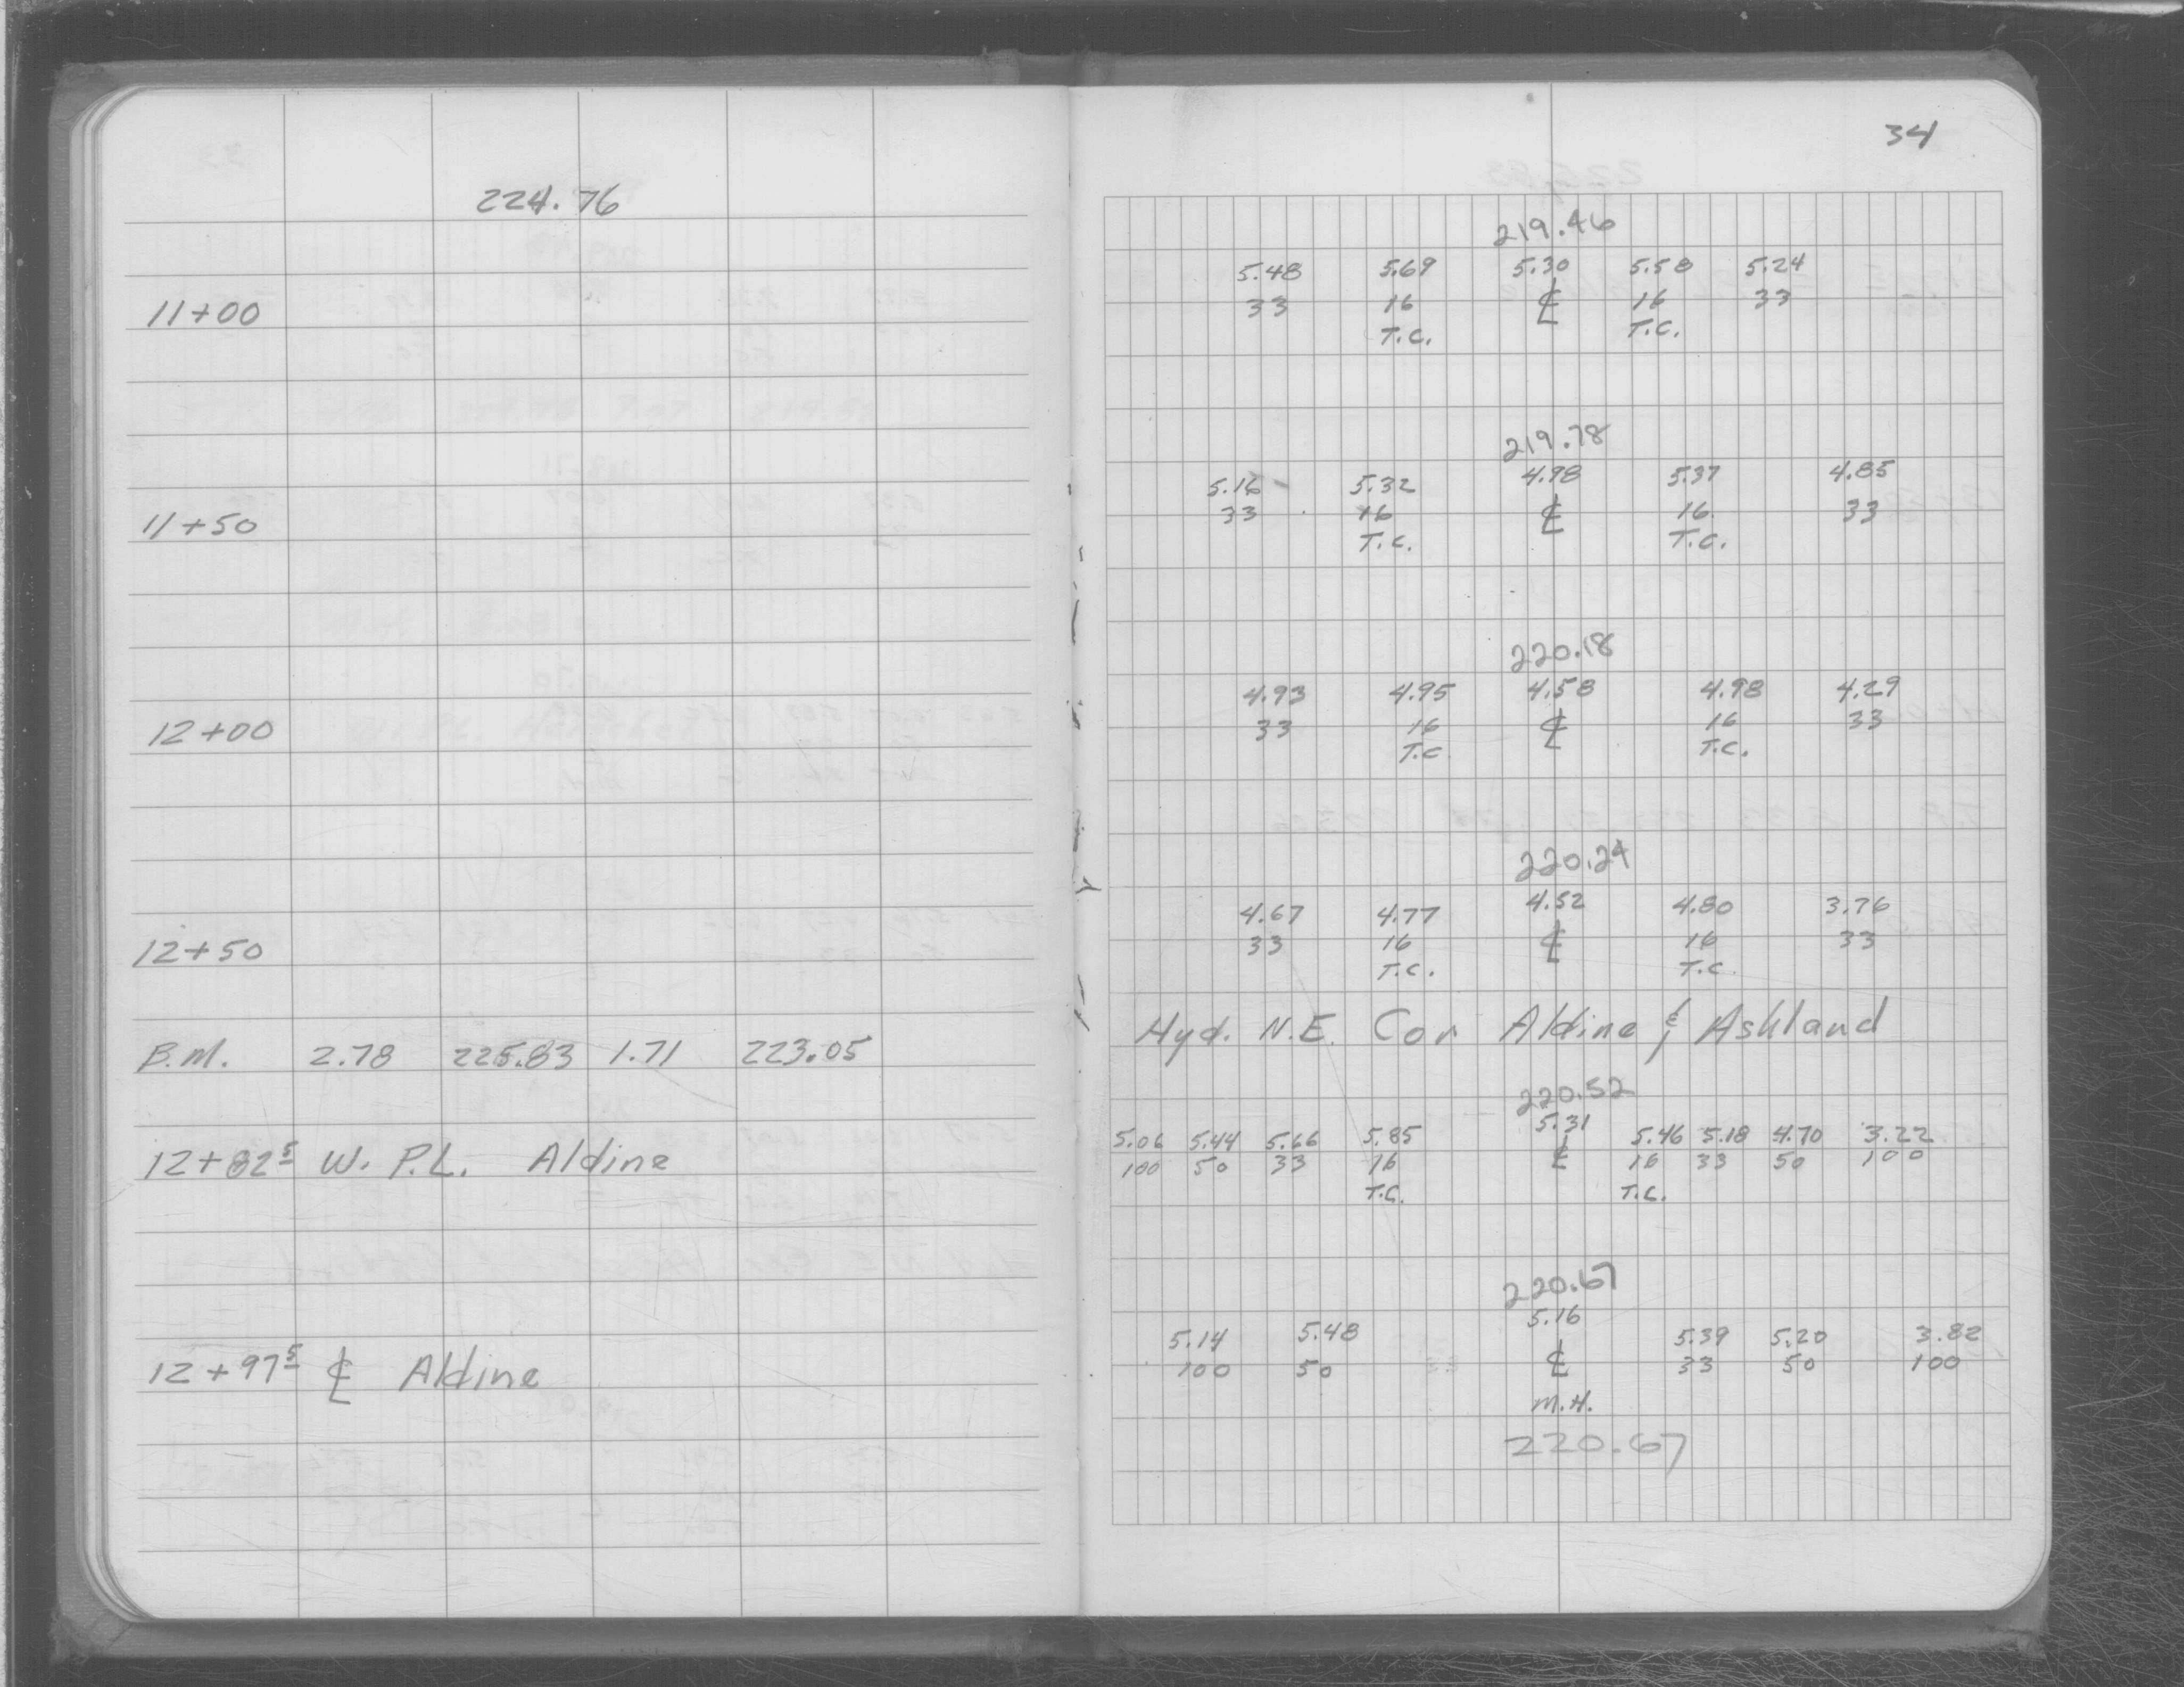 224.76
11+00
11+50
12+00
12+50
B.M. 2.78 225.83 1.71 223.05
12+82⁵ W. P.L. Aldine
12+97⁵ ℄ Aldine
34
219.46
5.48 5.69 5.30 5.58 5.24
33 16 ℄ 16 33
T.C. T.C.
219.78
5.16 5.32 4.98 5.37 4.85
33 16 ℄ 16 33
T.C. T.C.
220.18
4.93 4.95 4.58 4.98 4.29
33 16 ℄ 16 33
T.C T.C.
220.24
4.67 4.77 4.52 4.80 3.76
33 16 ℄ 16 33
T.C. T.C.
Hyd. N.E. Cor Aldine & Ashland
220.52
5.06 5.44 5.66 5.85 5.31 5.46 5.18 4.70 3.22
100 50 33 16 ℄ 16 33 50 100
T.C. T.C.
220.67
5.14 5.48 5.16 5.39 5.20 3.82
100 50 33 ℄ 33 50 100
M.H.
220.67